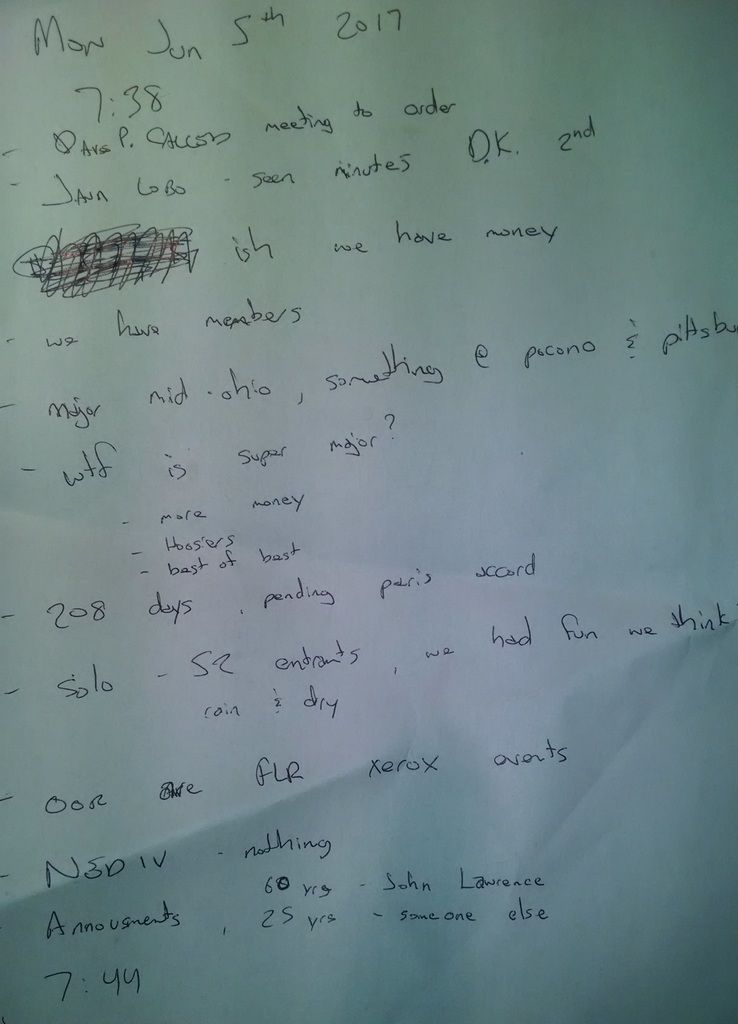 Mon Jun 5th 2017
7:38
- Dave P. Called meeting to order
- Java Lobo - seen minutes D.K. 2nd
ish we have money
- we have members
- Major mid-ohio, something @ pocono & pittsbu
- wtf is super major?
- more money
- Hoosiers
- best of best
- 208 days, pending paris accord
- Solo - 52 entrants, we had fun we think
rain & dry
- OOR are FLR xerox events
- NEDIV - nothing
60 yrs - John Lawrence
- Annousments, 25 yrs - someone else
7:44